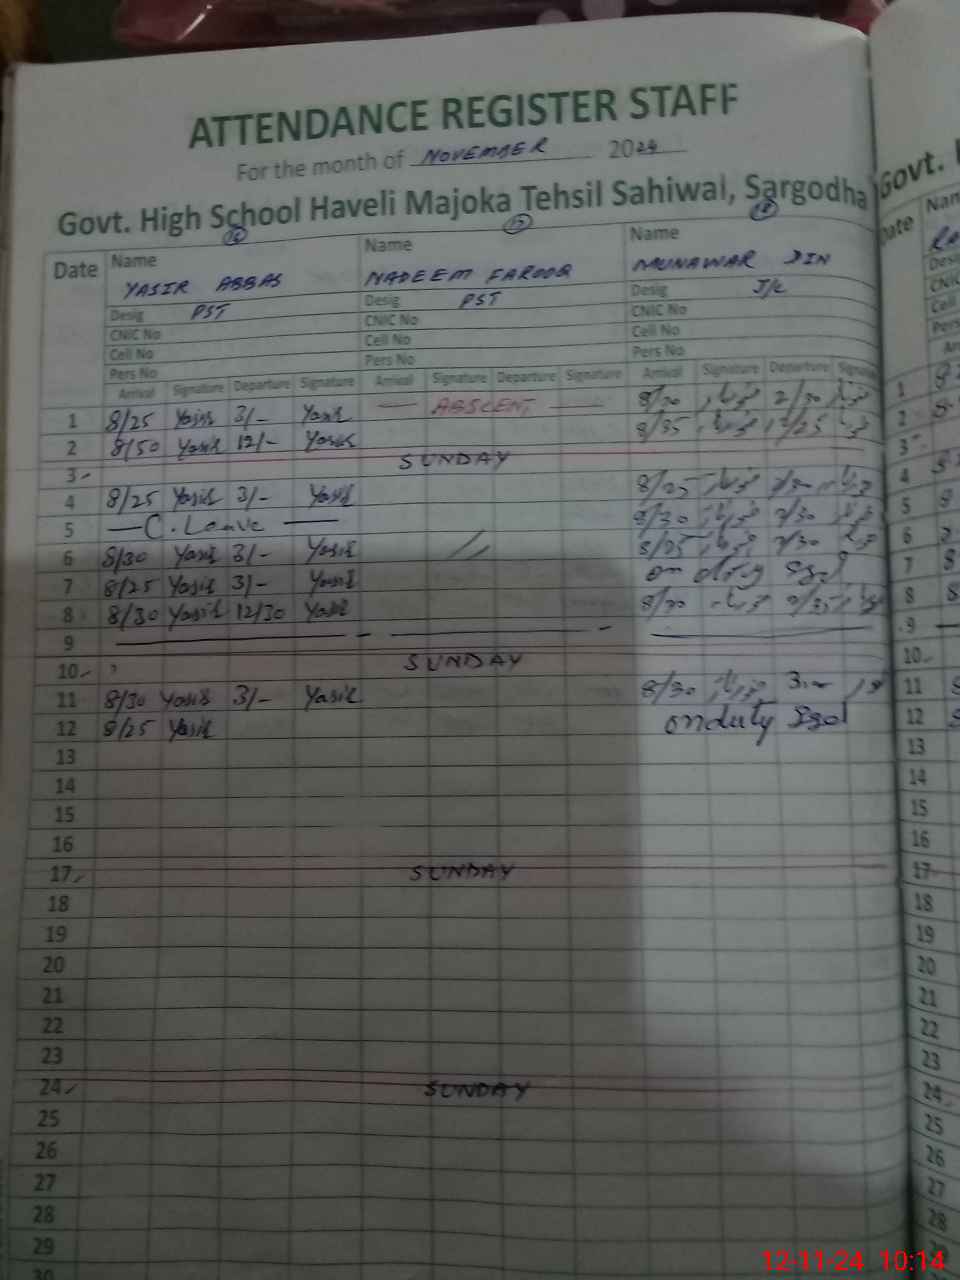 ATTENDANCE REGISTER STAFF
For the month of NOVEMBER 2024
Govt. High School Haveli Majoka Tehsil Sahiwal, Sargodha
Date
Name YASIR ABBAS
Desig PST
CNIC No
Cell No
Pers No
Arrival Signature Departure Signature
Name NADEEM FAROOQ
Desig PST
CNIC No
Cell No
Pers No
Arrival Signature Departure Signature
Name MUNAWAR DIN
Desig J/C
CNIC No
Cell No
Pers No
Arrival Signature Departure
1 8/25 Yasir 3/- Yasir ABSCENT 8/30 2/30
2 8/50 Yasir 12/- Yasir 8/35 12/25
3 SUNDAY
4 8/25 Yasir 3/- Yasir 8/25
5 C. Leave 8/30 2/30
6 8/30 Yasir 3/- Yasir 8/25 2/30
7 8/25 Yasir 3/- Yasir on duty
8 8/30 Yasir 12/30 Yasir 8/30
9
10 SUNDAY
11 8/30 Yasir 3/- Yasir 8/30
12 8/25 Yasir on duty
13
14
15
16
17 SUNDAY
18
19
20
21
22
23
24 SUNDAY
25
26
27
28
29
30
Govt.
Date
1
2
3
4
5
6
7
8
9
10
11
12
13
14
15
16
17
18
19
20
21
22
23
24
25
26
27
28
12-11-24 10:14